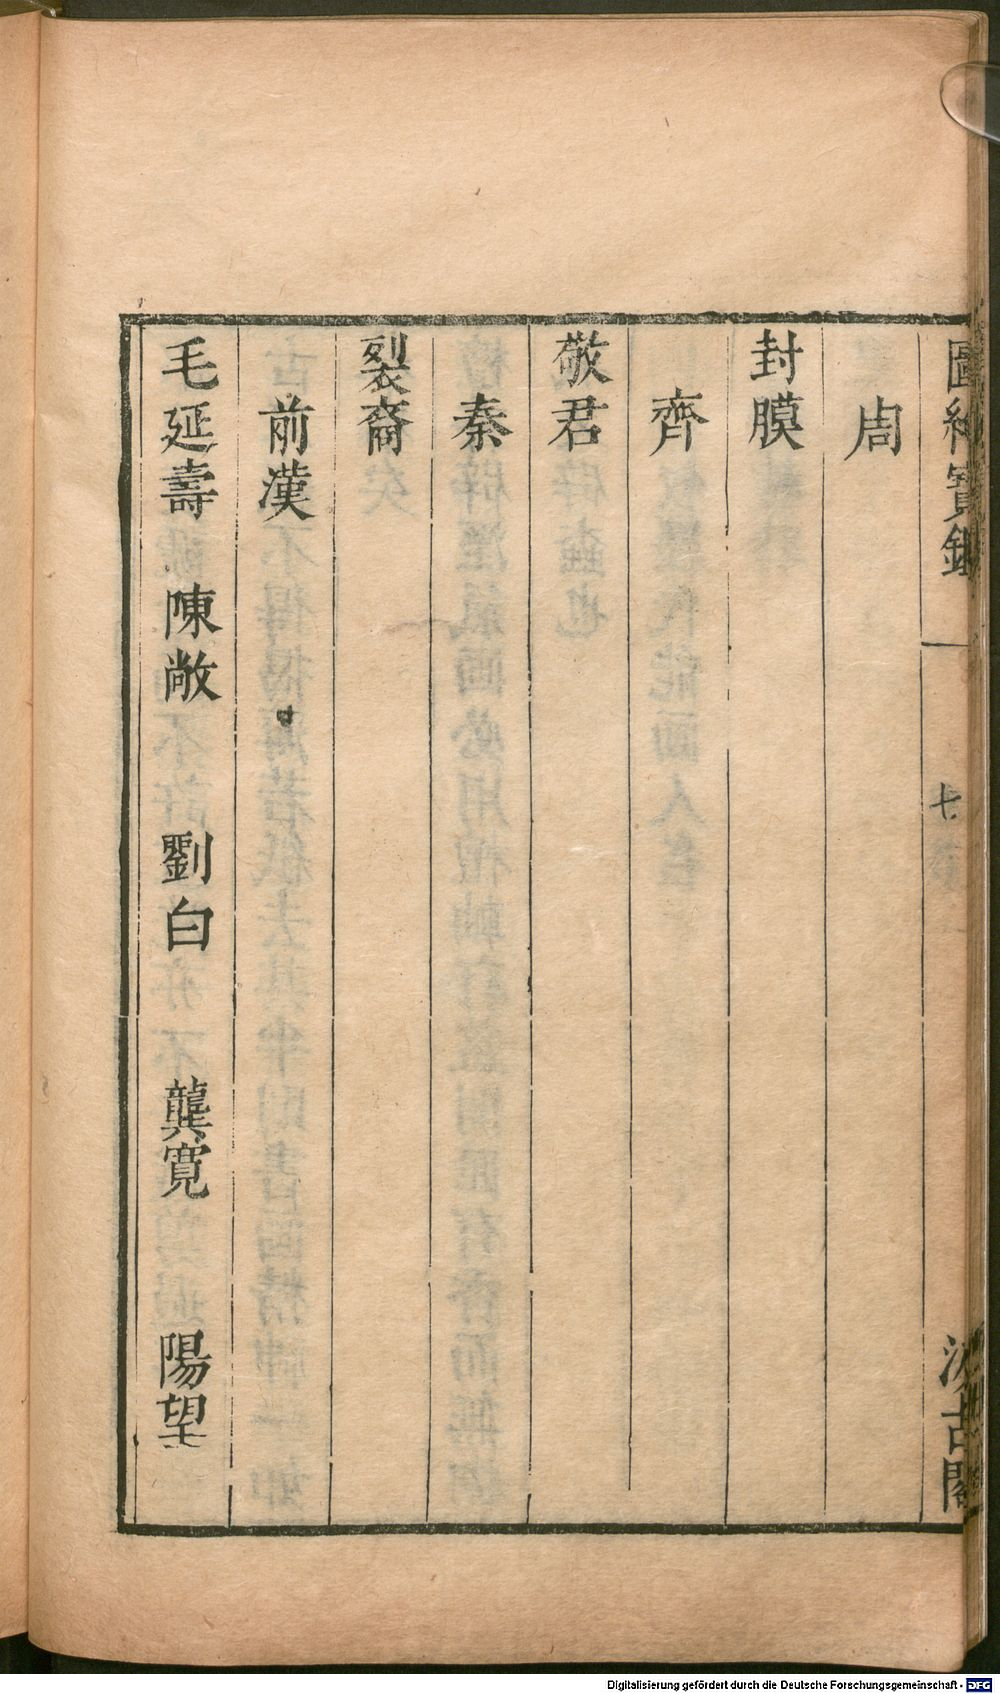 圖繪寶鑑 一 七 汲古閣
周
封膜
齊
敬君
秦
裂裔
前漢
毛延壽 陳敞 劉白 龔寬 陽望
Digitalisierung gefördert durch die Deutsche Forschungsgemeinschaft - DFG